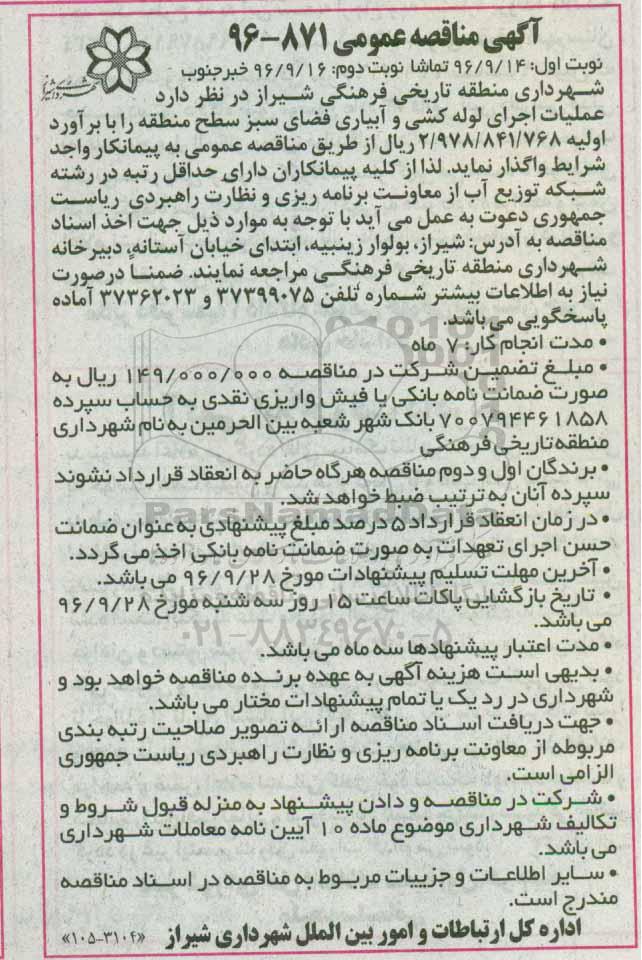 آگهی مناقصه عمومی ۸۷۱-۹۶
نوبت اول: ۹۶/۹/۱۴ تماشا نوبت دوم: ۹۶/۹/۱۶ خبرجنوب
شهرداری منطقه تاریخی فرهنگی شیراز در نظر دارد
عملیات اجرای لوله کشی و آبیاری فضای سبز سطح منطقه را با برآورد
اولیه ۲/۹۷۸/۸۴۱/۷۶۸ ریال از طریق مناقصه عمومی به پیمانکار واجد
شرایط واگذار نماید. لذا از کلیه پیمانکاران دارای حداقل رتبه در رشته
شبکه توزیع آب از معاونت برنامه ریزی و نظارت راهبردی ریاست
جمهوری دعوت به عمل می آید با توجه به موارد ذیل جهت اخذ اسناد
مناقصه به آدرس: شیراز، بولوار زینبیه، ابتدای خیابان آستانه، دبیرخانه
شهرداری منطقه تاریخی فرهنگی مراجعه نمایند. ضمنا درصورت
نیاز به اطلاعات بیشتر شماره تلفن ۳۷۳۹۹۰۷۵ و ۳۷۳۶۲۰۲۳ آماده
پاسخگویی می باشد.
• مدت انجام کار: ۷ ماه
• مبلغ تضمین شرکت در مناقصه ۱۴۹/۰۰۰/۰۰۰ ریال به
صورت ضمانت نامه بانکی یا فیش واریزی نقدی به حساب سپرده
۷۰۰۷۹۴۴۶۱۸۵۸ بانک شهر شعبه بین الحرمین به نام شهرداری
منطقه تاریخی فرهنگی
• برندگان اول و دوم مناقصه هرگاه حاضر به انعقاد قرارداد نشوند
سپرده آنان به ترتیب ضبط خواهد شد.
• در زمان انعقاد قرارداد ۵ درصد مبلغ پیشنهادی به عنوان ضمانت
حسن اجرای تعهدات به صورت ضمانت نامه بانکی اخذ می گردد.
• آخرین مهلت تسلیم پیشنهادات مورخ ۹۶/۹/۲۸ می باشد.
• تاریخ بازگشایی پاکات ساعت ۱۵ روز سه شنبه مورخ ۹۶/۹/۲۸
می باشد.
• مدت اعتبار پیشنهادها سه ماه می باشد.
• بدیهی است هزینه آگهی به عهده برنده مناقصه خواهد بود و
شهرداری در رد یک یا تمام پیشنهادات مختار می باشد.
• جهت دریافت اسناد مناقصه ارائه تصویر صلاحیت رتبه بندی
مربوطه از معاونت برنامه ریزی و نظارت راهبردی ریاست جمهوری
الزامی است.
• شرکت در مناقصه و دادن پیشنهاد به منزله قبول شروط و
تکالیف شهرداری موضوع ماده ۱۰ آیین نامه معاملات شهرداری
می باشد.
• سایر اطلاعات و جزییات مربوط به مناقصه در اسناد مناقصه
مندرج است.
اداره کل ارتباطات و امور بین الملل شهرداری شیراز «۱۰۵-۳۱۰۴»
ParsNamadData
۰۲۱-۸۸۳۴۹۶۷۰-۵